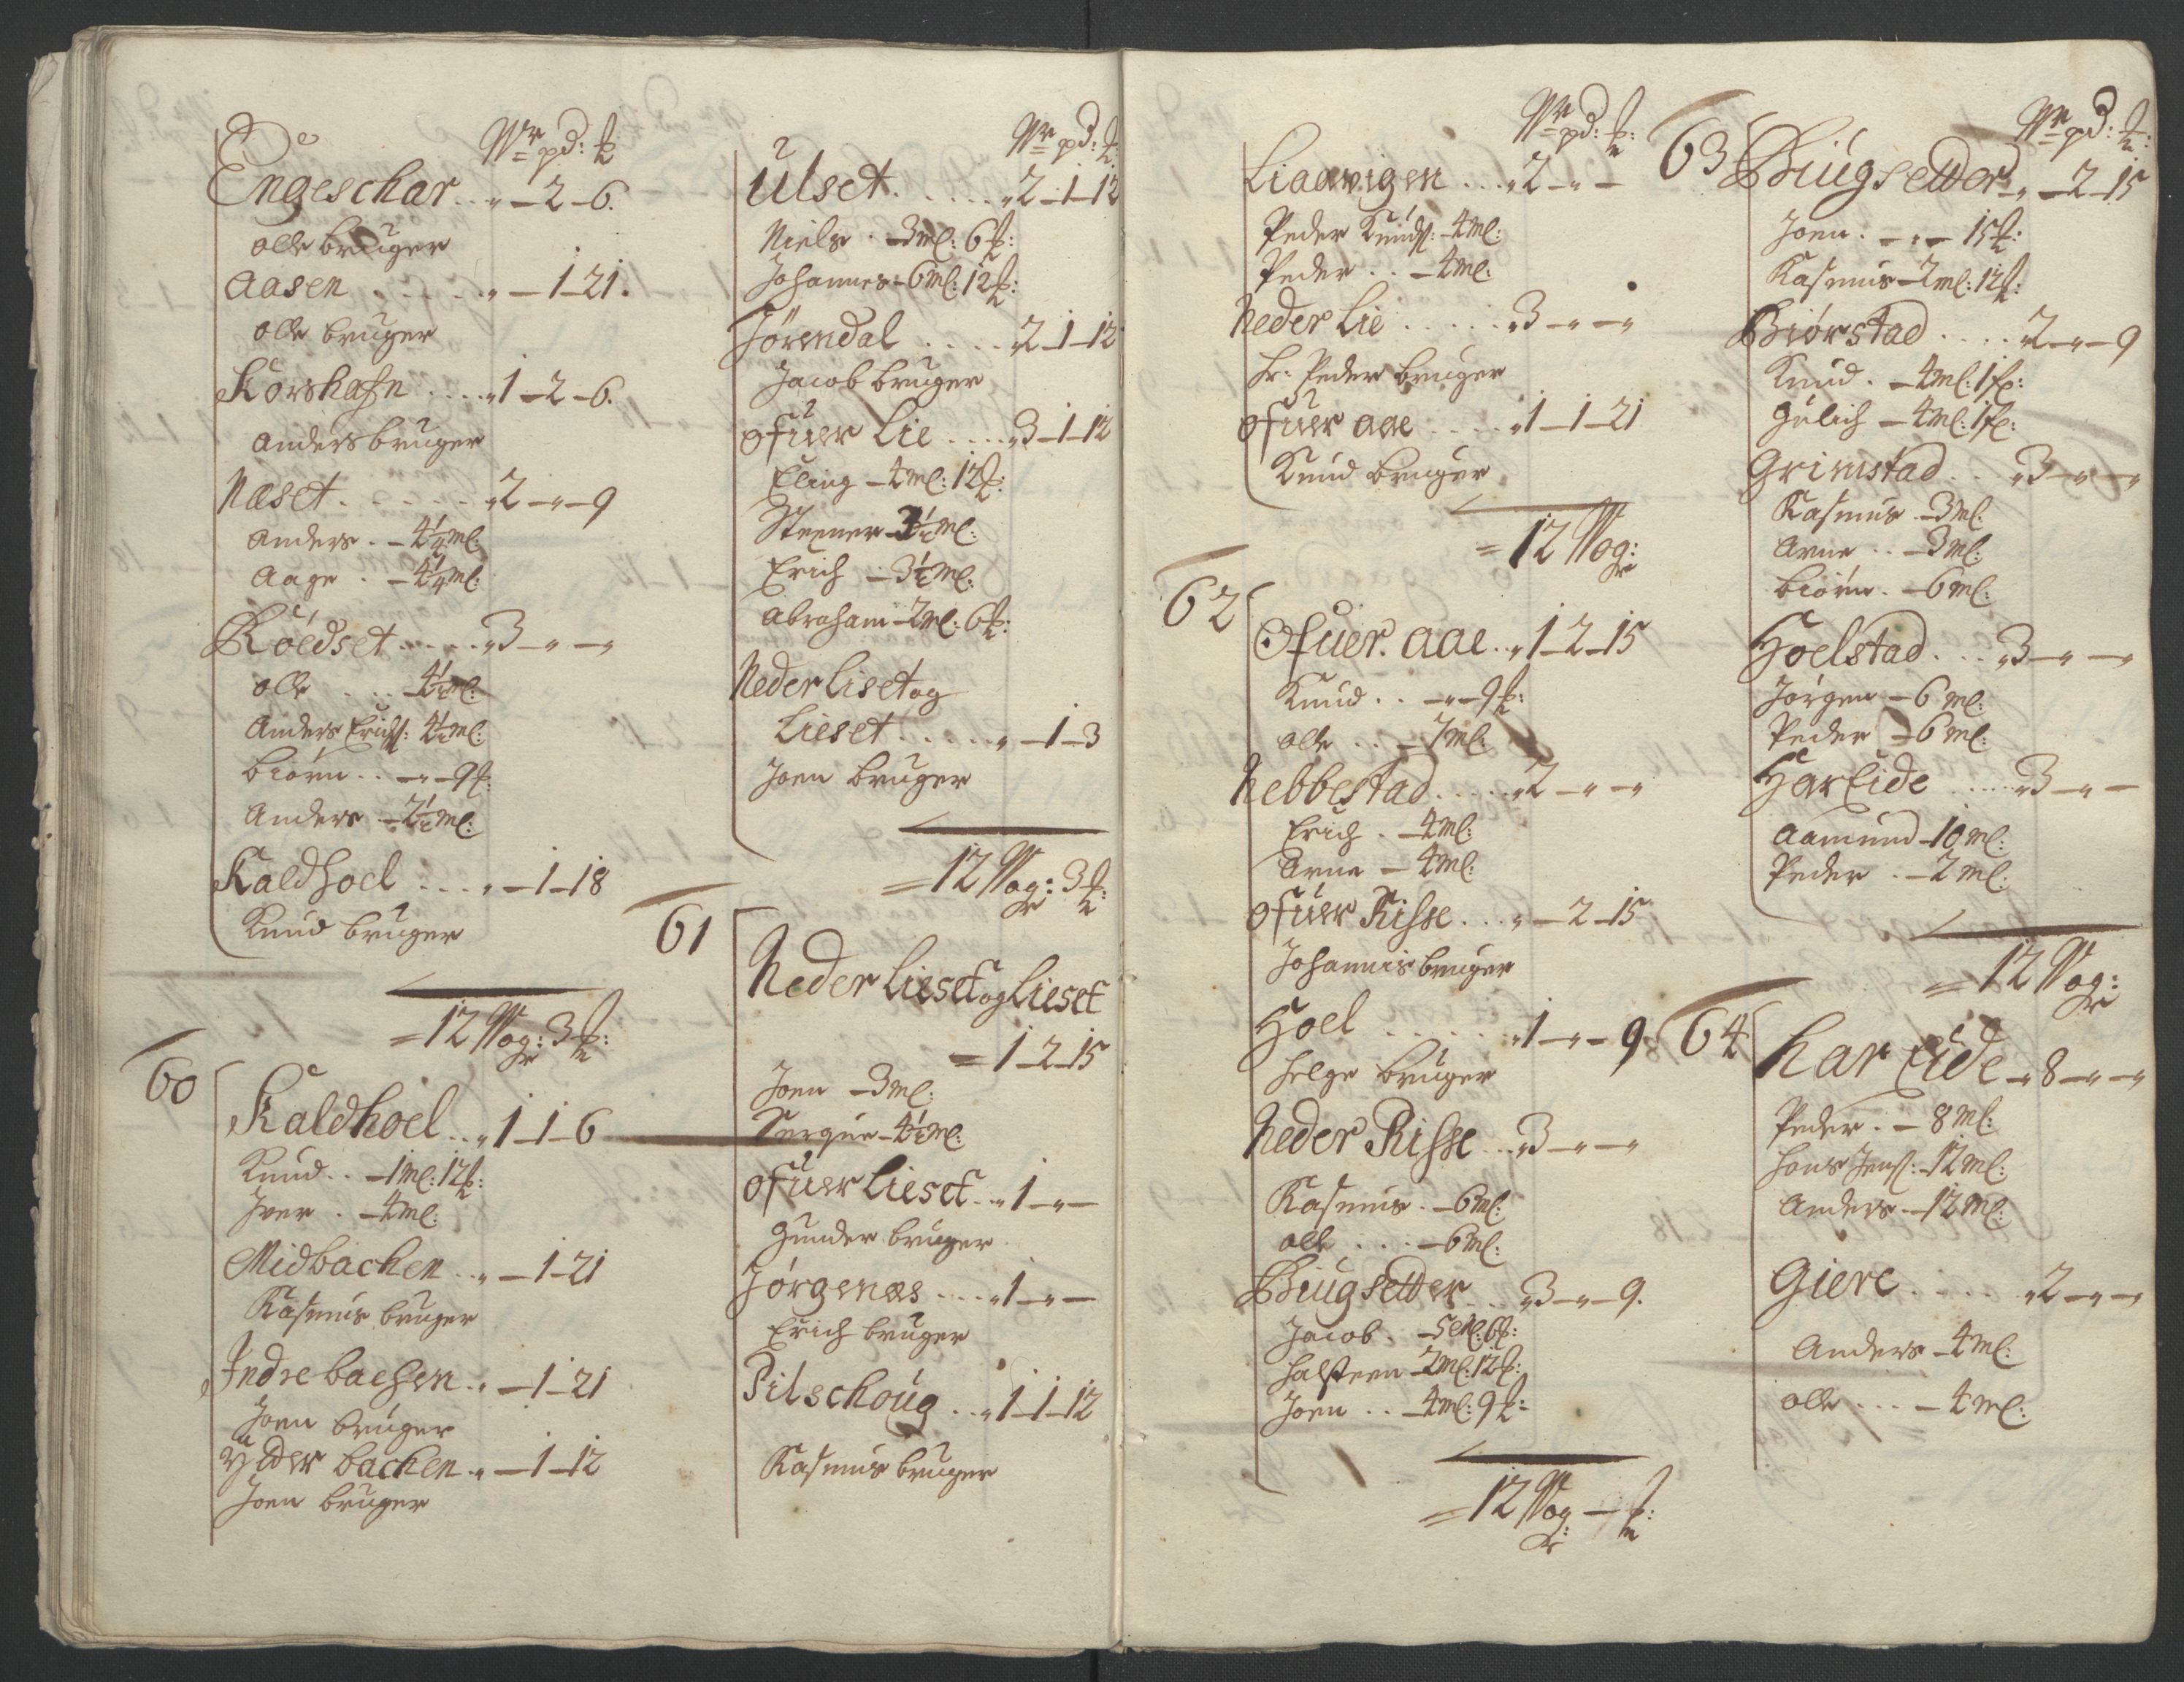 Wr pd: ℔
Engeschar . . „ – 2 – 6.
olle bruger
Aasen . . . . „ – 1 – 21.
olle bruger
Korshafn . . . „ 1 – 2 – 6.
anders bruger
Næset . . . . „ 2 – „ – 9
Anders . – 4¼ ml:
Aage . – 4¼ ml:
Röedset . . . . „ 3 – „ – „
olle . . . 4½ ml:
Anders Erichs: 4½ ml:
biörn . . – „ – 9 ℔:
Anders – 2½ ml:
Kaldhoel . . . „ – 1 – 18
Knud bruger
= 12 Wog: 3 ℔:
60
Kaldhoel . . „ 1 – 1 – 6
Knud . . – 1 ml: 12 ℔:
Iver . – 4 ml:
Midbachen . . „ – 1 – 21
Rasmus bruger
Indrebachen . „ – 1 – 21
Joen bruger
Ytter bachen . „ – 1 – 12
Joen bruger
Wr pd: ℔:
Ulset . . . . . „ 2 – 1 – 12
Niels . – 3 ml: 6 ℔:
Johannes – 6 ml: 12 ℔:
Jörendal . . . . „ 2 – 1 – 12
Jacob bruger
ofuer Lie . . . . „ 3 – 1 – 12
Eling – 4 ml: 12 ℔:
Steener – 3½ ml:
Erich – 3½ ml:
Abraham – 2 ml: 6 ℔:
Neder Liset og
Lieset . . . . . „ – 1 – 3
Joen bruger
= 12 Wog: 3 ℔:
61
Neder Lieset og Lieset
= 1 – 2 – 15
Joen – 3 ml:
– 4½ ml:
ofuer Lieset . . „ 1 – „ –
Gunder bruger
Jörgenæs . . . . „ 1 – „ –
Erich bruger
Pilschoug . . „ 1 – 1 – 12
Rasmus bruger
Wr pd: ℔:
Liaavigen . . . „ 2 – „ –
Peder Knuds: – 4 ml:
Peder . . – 4 ml:
Neder Lie . . . . . „ 3 – „ – „
Hr: Peder bruger
ofuer aae . . . . „ 1 – 1 – 21
Knud bruger
= 12 Wog:
62
Ofuer. aae . . „ 1 – 2 – 15
Knud . . – „ – 9 ℔:
olle . . – 7 ml:
Nebbestad . . . . „ 2 – „ – „
Erich . – 4 ml:
Arne – 4 ml:
ofuer Risse . . . „ – 2 – 15
Johannis bruger
Hoel . . . . . . „ 1 – „ – 9
Helge bruger
Neder Risse . . „ 3 – „ – „
Rasmus . – 6 ml:
olle . . . – 6 ml:
Biugsetter . . „ 3 – „ – 9.
Jacob . – 5 ml: 6 ℔:
Halsteen – 2 ml: 12 ℔:
Joen . . – 4 ml: 9 ℔:
= 12 Wog – ℔:
Wr pd: ℔:
63
Biugsetter „ – 2 – 15
Joen . – „ – 15 ℔:
Rasmus – 2 ml: 12 ℔:
Biörstad . . . . „ 2 – „ – 9
Knud . – 4 ml: 1 f:
Gulich – 4 ml: 1 f:
Grimstad . . „ 3 – „ – „
Rasmus – 3 ml:
Arne . . – 3 ml:
biörn . – 6 ml:
Hoelstad . . . „ 3 – „ – „
Jörgen – 6 ml:
Peder – 6 ml:
Har Eide . . . . . „ 3 – „ –
Aamund – 10 ml:
Peder . – 2 ml:
= 12 Wog:
64
Har Eide – „ 8 – „ – „
Peder . – 8 ml:
Hans Jens: – 12 ml:
Anders . – 12 ml:
Giere . . . . . „ 2 – „ – „
Anders – 4 ml:
olle . . . – 4 ml: